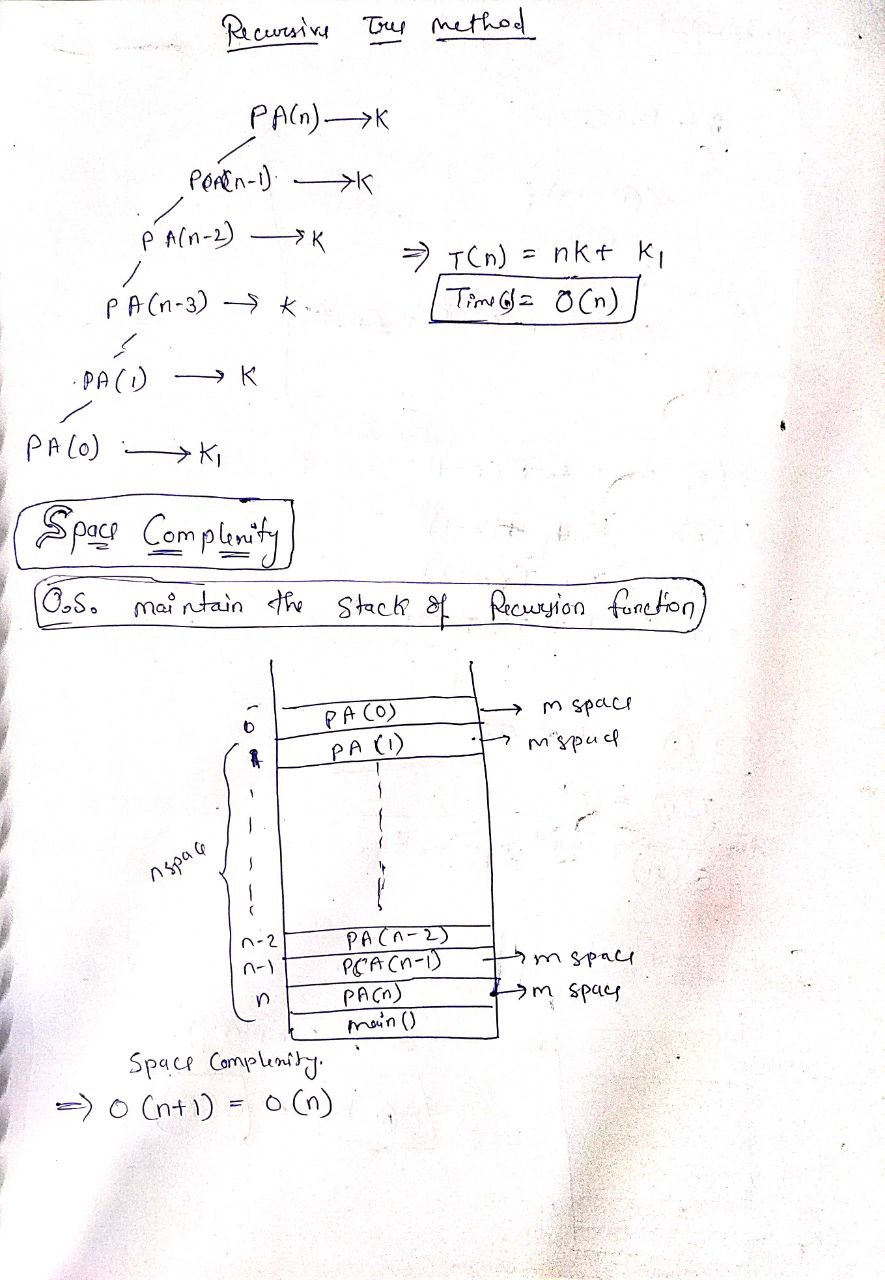 Recursive Tree method
PA(n) → K
PA(n-1) → K
PA(n-2) → K
PA(n-3) → K
PA(1) → K
PA(0) → K1
⇒ T(n) = nK + K1
Time = O(n)
Space Complenity
O.S. maintain the stack of Recursion function
0 PA(0) → m space
PA(1) → m space
n space
n-2 PA(n-2)
n-1 PA(n-1) → m space
n PA(n) → m space
main()
Space Complenity.
⇒ O(n+1) = O(n)